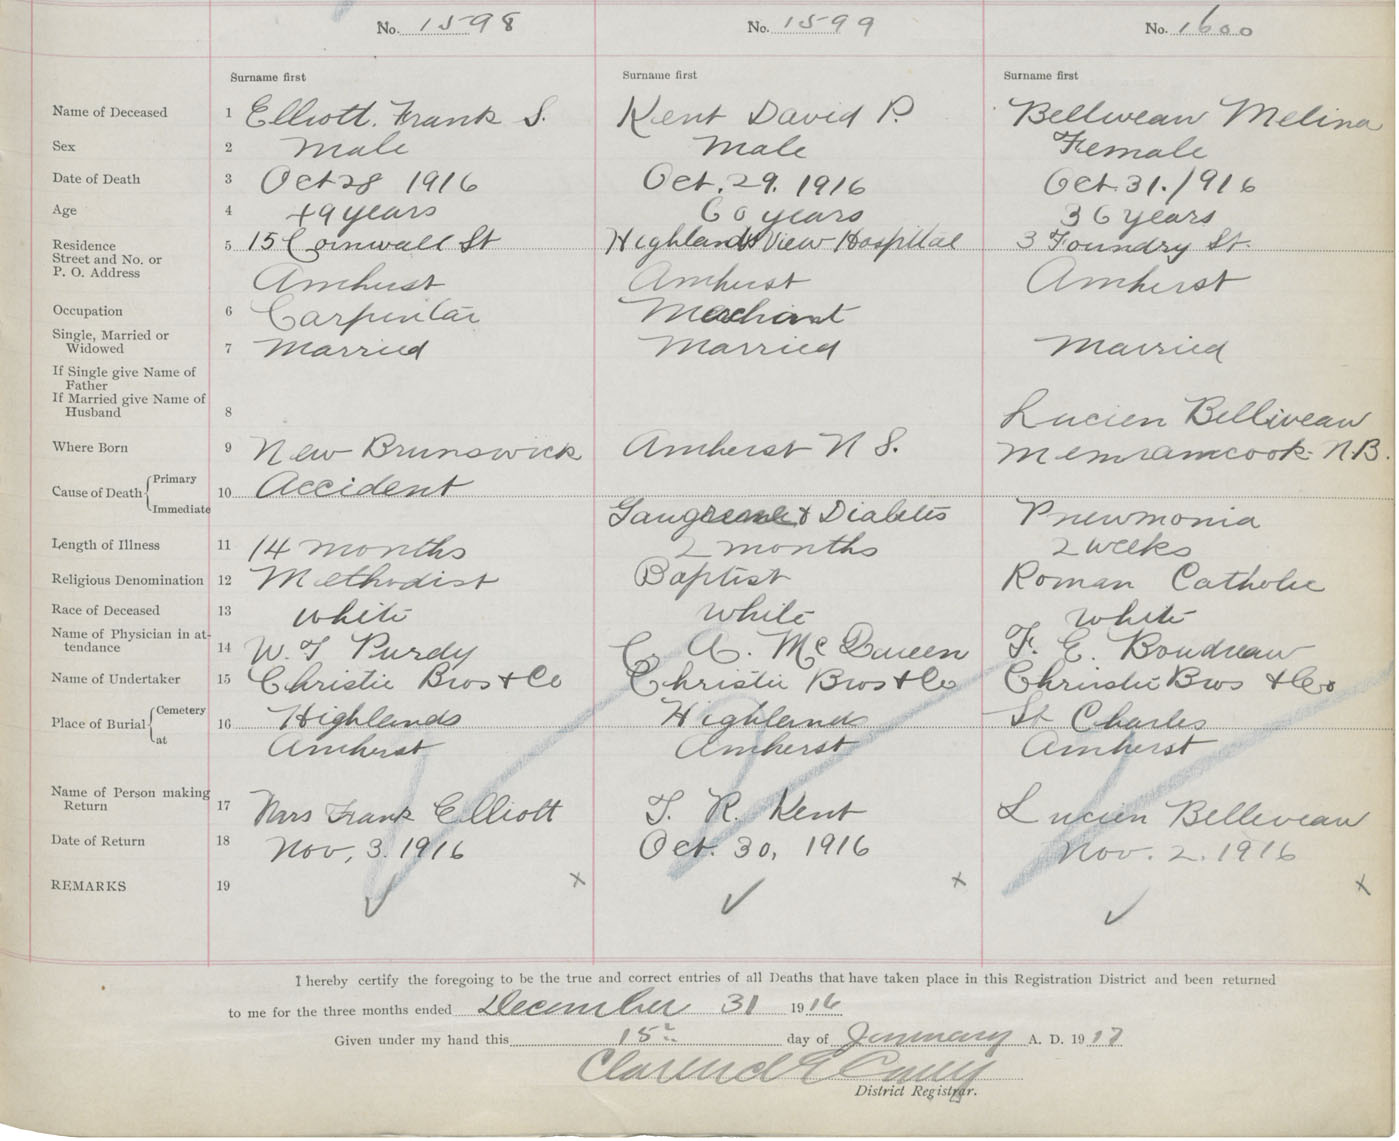 No. 1598 No. 1599 No. 1600
Surname first Surname first Surname first
Name of Deceased 1 Elliott. Frank S. Kent David P. Belliveau Melina
Sex 2 Male Male Female
Date of Death 3 Oct 28 1916 Oct. 29. 1916 Oct. 31. 1916
Age 4 49 years 60 years 36 years
Residence 5 15 Cornwall St Highland View Hospital 3 Foundry St.
Street and No. or
P. O. Address Amherst Amherst Amherst
Occupation 6 Carpenter Merchant
Single, Married or
Widowed 7 Married Married Married
If Single give Name of
Father
If Married give Name of
Husband 8 Lucien Belliveau
Where Born 9 New Brunswick Amherst N S. Memramcook N.B.
Cause of Death Primary 10 Accident
Immediate Gangrene & Diabetes Pnewmonia
Length of Illness 11 14 months 2 months 2 weeks
Religious Denomination 12 Methodist Baptist Roman Catholic
Race of Deceased 13 white white white
Name of Physician in at-
tendance 14 W. T Purdy C. A. McQueen F. E. Boudreau
Name of Undertaker 15 Christie Bros & Co Christie Bros & Co Christie Bros & Co
Place of Burial Cemetery 16 Highlands Highland St Charles
at Amherst Amherst Amherst
Name of Person making
Return 17 Mrs Frank Elliott T. R. Kent Lucien Belleveau
Date of Return 18 Nov, 3. 1916 Oct. 30, 1916 Nov. 2. 1916
REMARKS 19
I hereby certify the foregoing to be the true and correct entries of all Deaths that have taken place in this Registration District and been returned
to me for the three months ended December 31 1916
Given under my hand this 15th day of January A. D. 1917
Clarence E Casey
District Registrar.